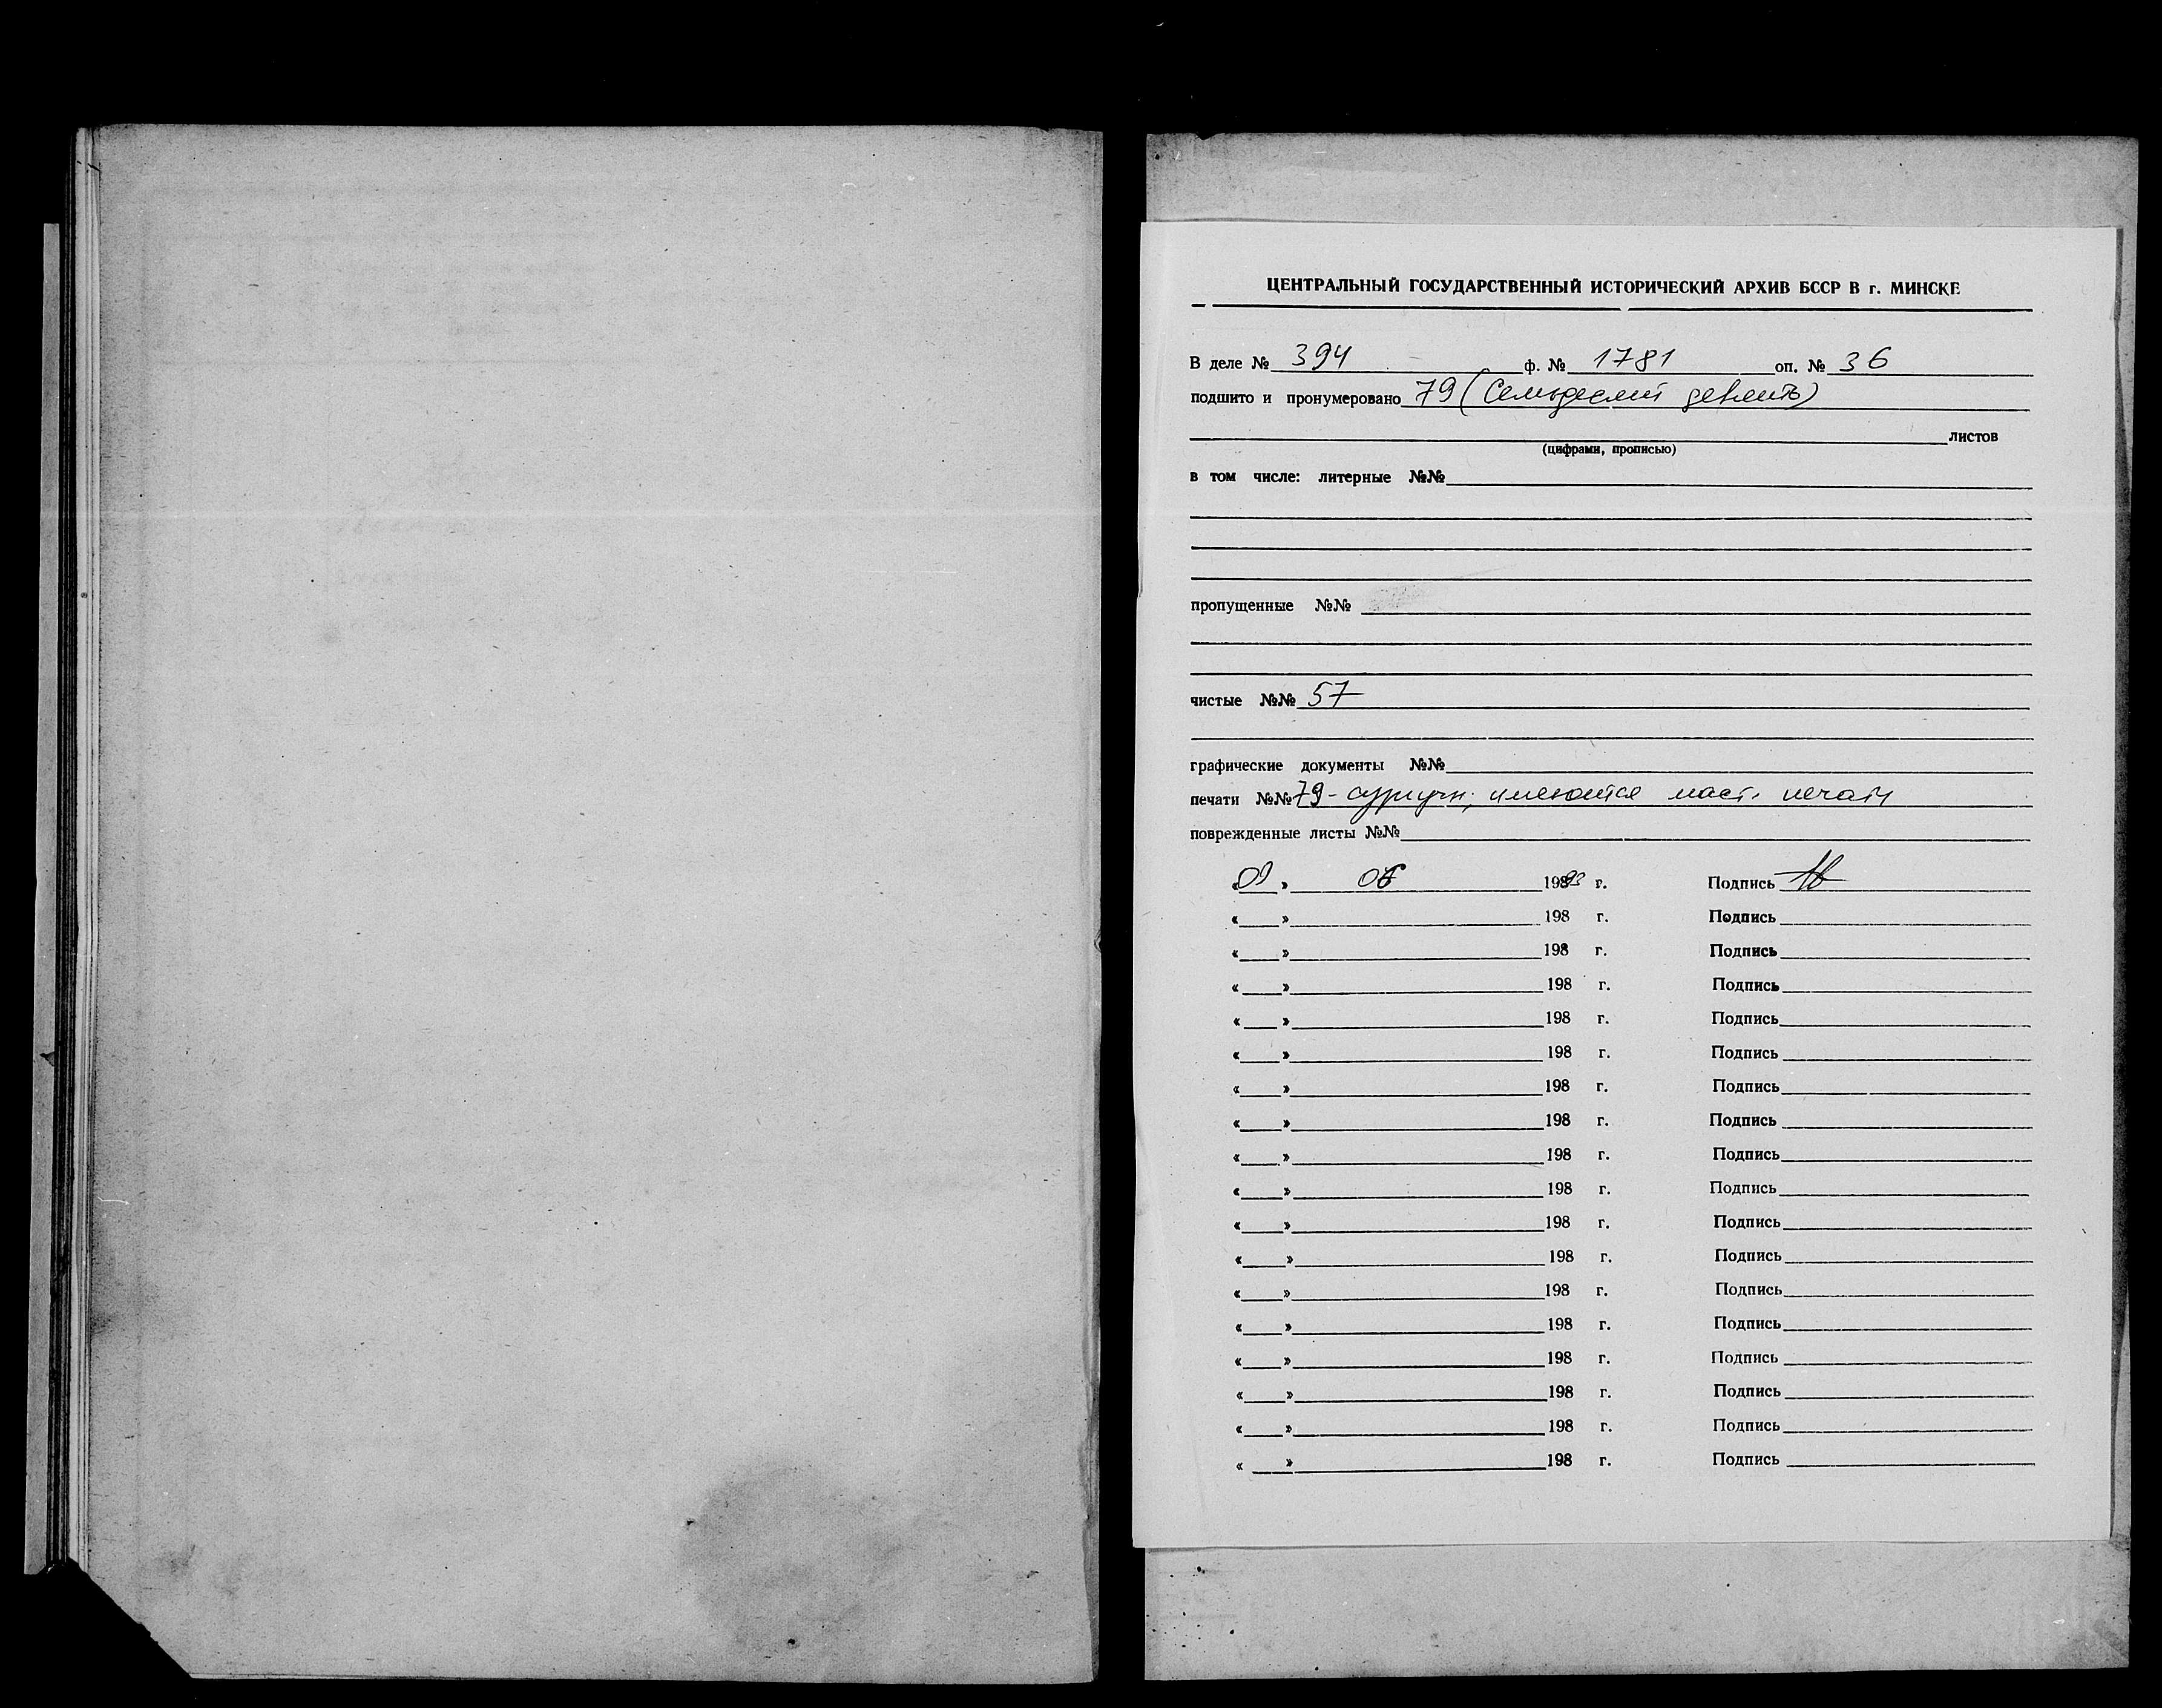 ЦЕНТРАЛЬНЫЙ ГОСУДАРСТВЕННЫЙ ИСТОРИЧЕСКИЙ АРХИВ БССР В г. МИНСКЕ
В деле № 394 ф. № 1781 оп. № 36
подшито и пронумеровано 79 (Семьдесят девять)
листов
(цифрами, прописью)
в том числе: литерные №№
пропущенные №№
чистые №№ 57
графические документы №№
печати №№ 79 - сургучн; имеются маст. печати
поврежденные листы №№
« » 198 г. Подпись
« » 198 г. Подпись
« » 198 г. Подпись
« » 198 г. Подпись
« » 198 г. Подпись
« » 198 г. Подпись
« » 198 г. Подпись
« » 198 г. Подпись
« » 198 г. Подпись
« » 198 г. Подпись
« » 198 г. Подпись
« » 198 г. Подпись
« » 198 г. Подпись
« » 198 г. Подпись
« » 198 г. Подпись
« » 198 г. Подпись
« » 198 г. Подпись
« » 198 г. Подпись